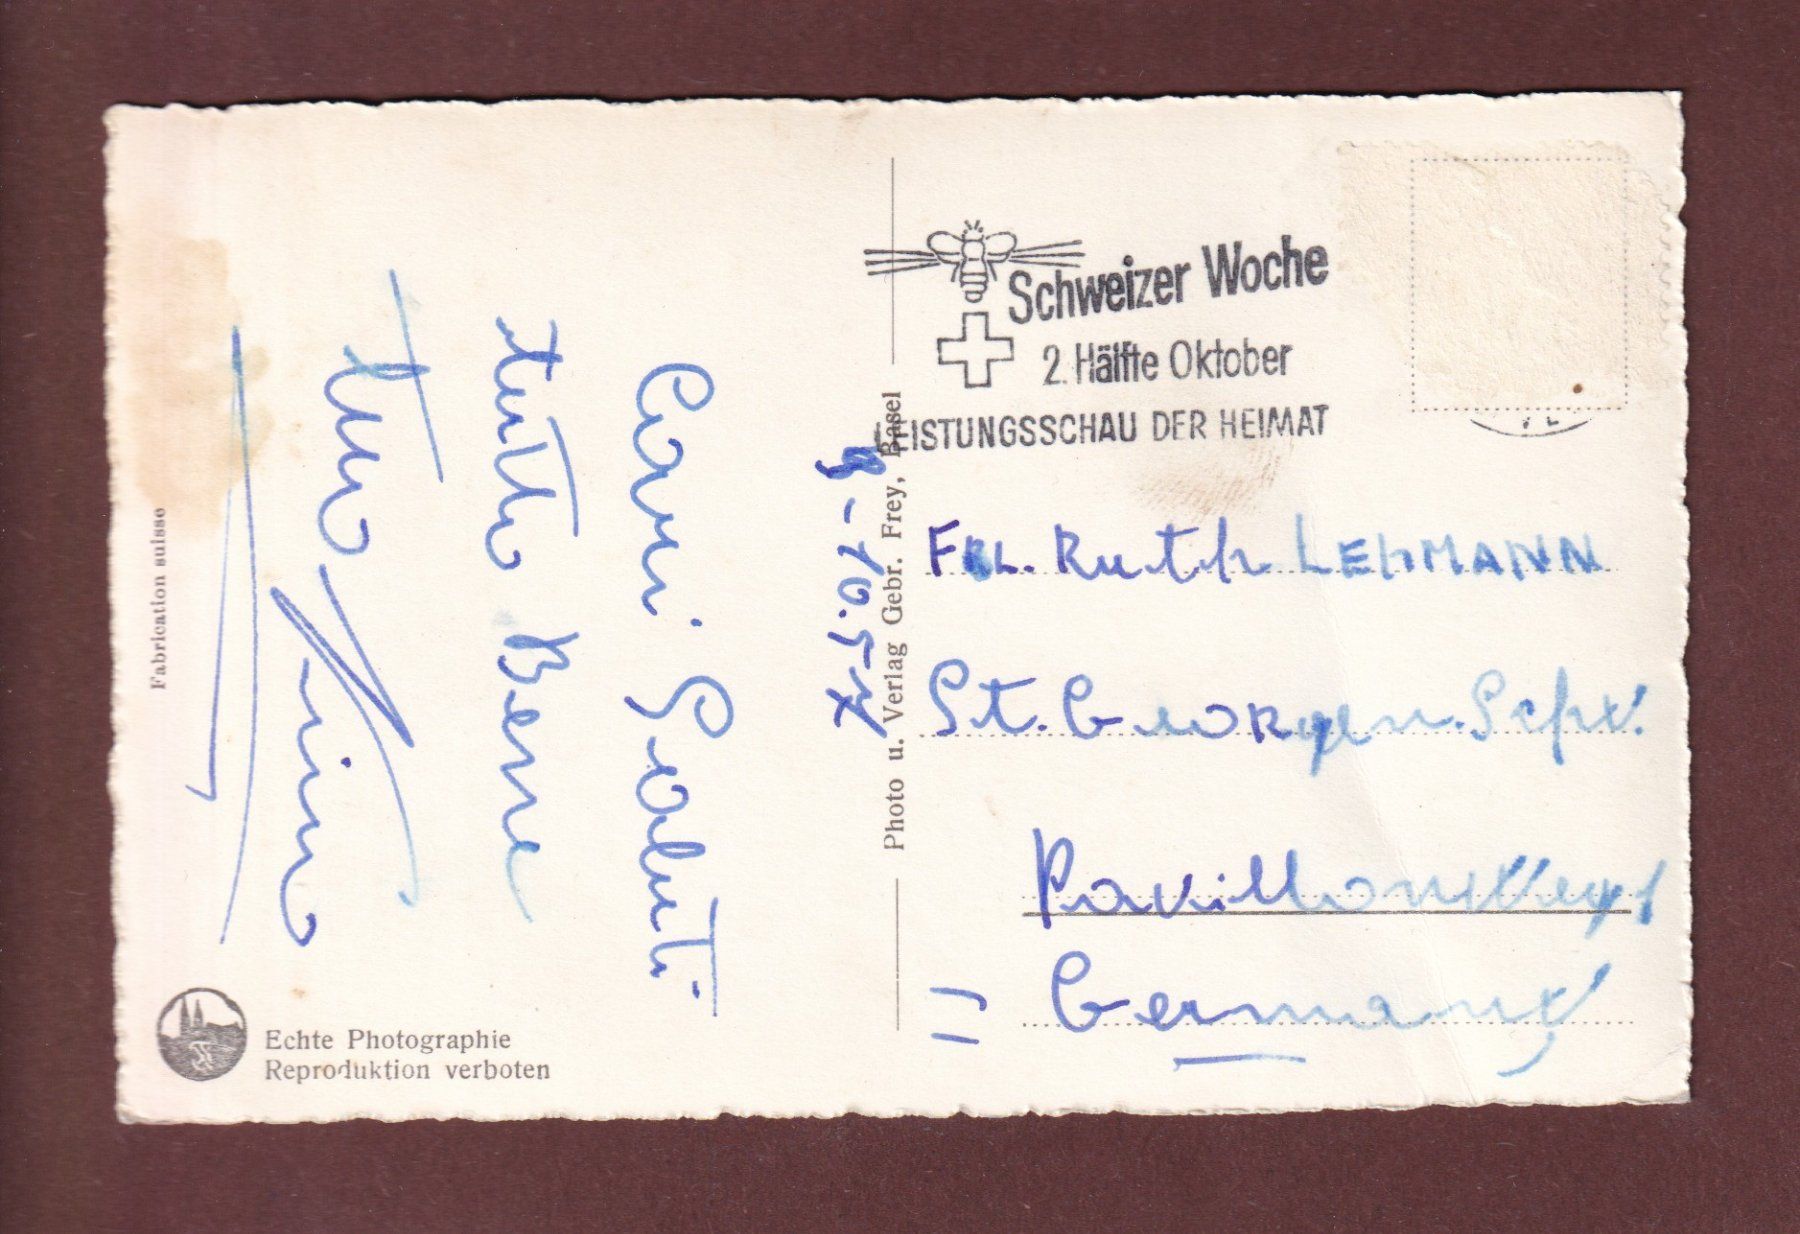 Fabrication suisse
9-10.54
Cari Saluti
tutto Bene
tuo
Nino
Echte Photographie
Reproduktion verboten
Photo u. Verlag Gebr. Frey, Basel
Schweizer Woche
2. Hälfte Oktober
LEISTUNGSSCHAU DER HEIMAT
FRL. Ruth LEHMANN
St. Georgen. Schw.
Germany